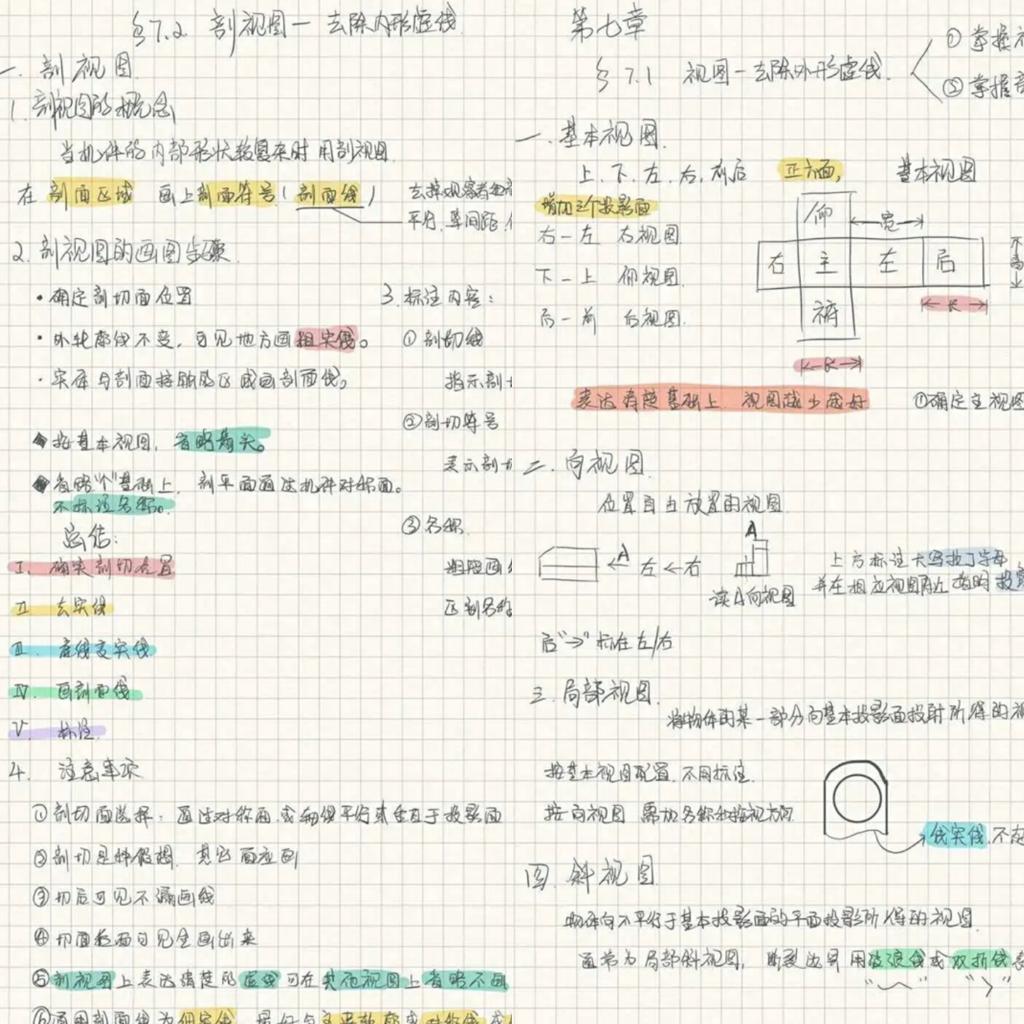 §7.2 剖视图一 去除内形虚线
一. 剖视图
1. 剖视图的概念
当机件的内部形状较复杂时 用剖视图
在 剖面区域 画上剖面符号(剖面线)
平行. 等间距.
2. 剖视图的画图步骤
• 确定剖切面位置
• 外轮廓线不变, 可见地方画粗实线。
• 实体与剖面接触的区域画剖面线。
◆ 按基本视图, 省略箭头。
◆ 省略"个"基础上, 剖平面通过机件对称面。
不标注名称。
总结:
I. 确定剖切位置
II 去实线
III. 虚线变实线
IV. 画剖面线
V. 标注
3. 标注内容:
① 剖切线
指示剖
② 剖切符号
表示剖
③ 名称
区别名称
4. 注意事项
① 剖切面选择: 通过对称面 或轴线平行或垂直于投影面
② 剖切是种假想. 其它面应到
③ 切后可见不漏画线
④ 切面后面可见全画出来
⑤ 剖视图上表达清楚的 虚线可在其他视图上省略不画
⑥ 通用剖面线为细实线. 最好与主要轮廓或对称线成
第七章
§7.1 视图一去除外形虚线.
① 掌握
② 掌握
一. 基本视图.
上. 下. 左. 右. 前后 正六面, 基本视图
增加三个投影面
右-左 右视图
下-上 仰视图.
后-前 后视图.
仰
宽
右 主 左 后
长
俯
长
表达清楚基础上. 视图越少越好 ①确定主视图
二. 向视图.
位置自由放置的视图
A 左←右
A
读A向视图
上方标注大写拉丁字母
并在相应视图附近 指明 投影
后"→"标在左/右
三. 局部视图.
将物体的某一部分向基本投影面投射所得的视
按基本视图配置. 不用标注.
按向视图 需加名称和投视方向
线实线.
四. 斜视图.
物体向不平行于基本投影面的平面投影所得的视图.
通常为局部斜视图, 断裂边界用波浪线或双折线